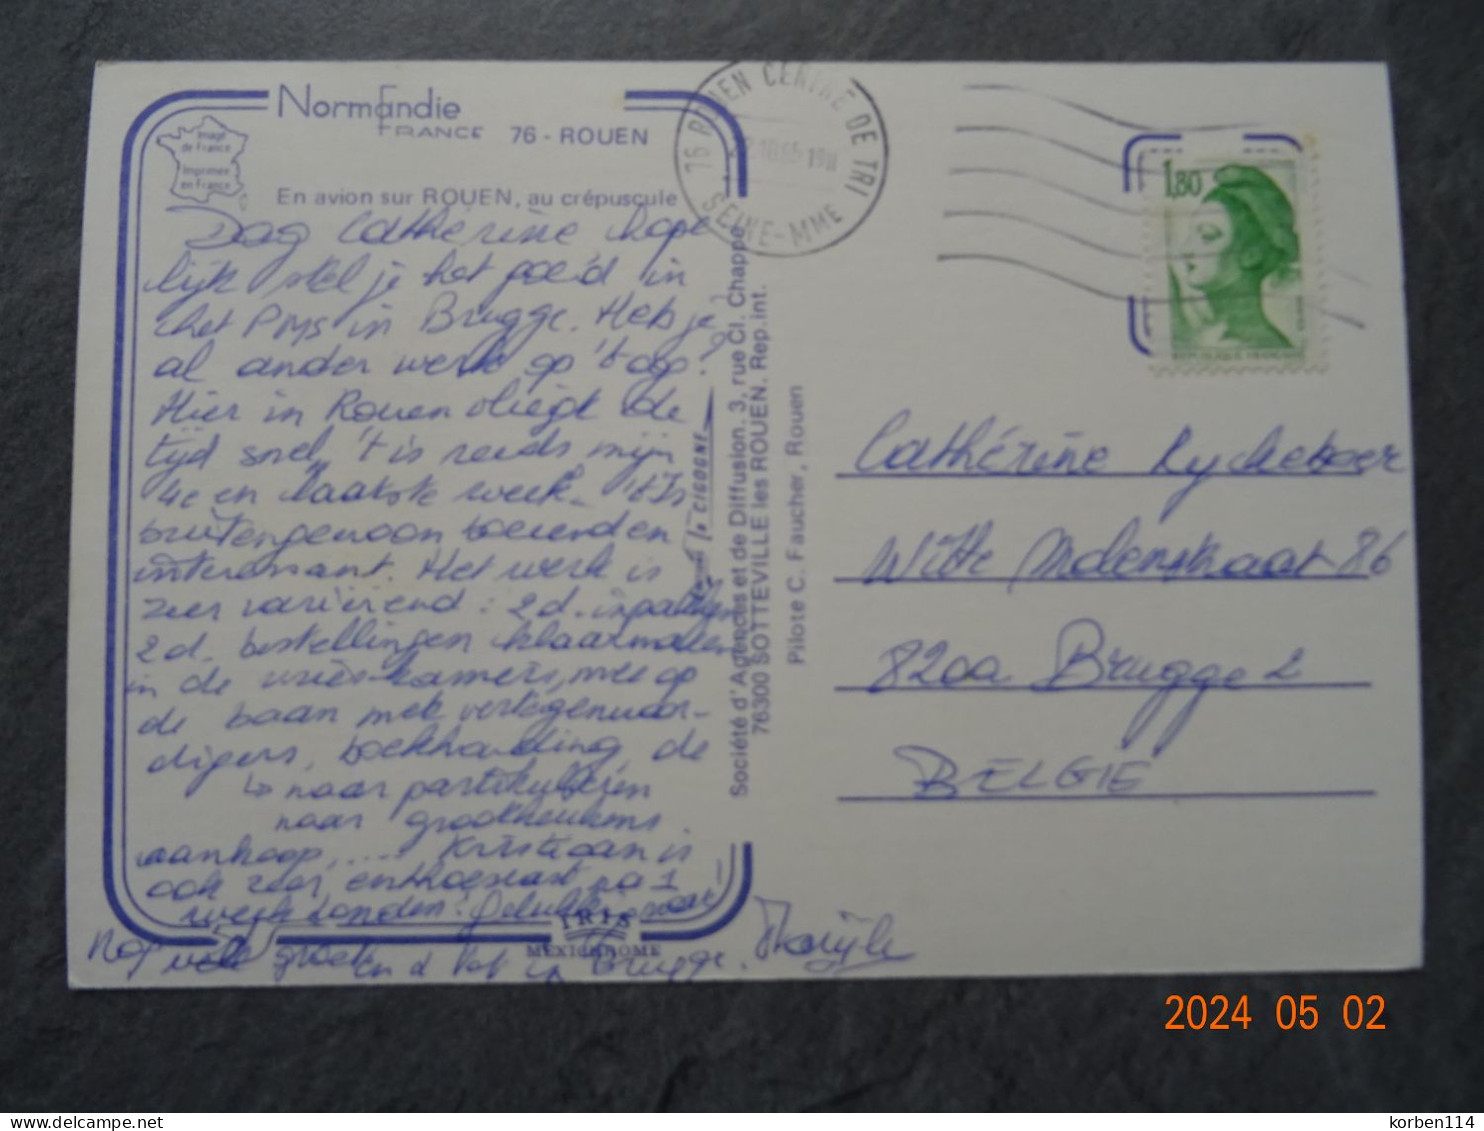 Normandie
FRANCE 76 - ROUEN
Image
de France
Imprimée
en France
En avion sur ROUEN, au crépuscule
Dag Cathérine hope
lijk stel je het goed in
het PMS in Brugge. Heb je
al ander werk op 't oog?
Hier in Rouen vliegt de
tijd snel, 't is reeds mijn
4e en laatste week. 't Is
buitengewoon boeiend en
interessant. Het werk is
zeer variërend: 2d. inpakken
2d. bestellingen klaarmaken
in de vrieskamers, mee op
de baan met vertegenwoor-
digers, boekhouding, de
↳ naar partikulieren
naar grootkeukens
aankoop, .... Kristiaan is
ook zeer enthousiast na 1
week Londen!
Nog vele groeten
Brugge. Marijke
IRIS
MEXICHROME
la CIGOGNE
Société d'Agences et de Diffusion, 3, rue Cl. Chappe
76300 SOTTEVILLE les ROUEN. Rep. int.
Pilote C. Faucher, Rouen
76 ROUEN CENTRE DE TRI
SEINE-MME
1,80
REPUBLIQUE FRANÇAISE
Cathérine Ryckeboer
Witte Molenstraat 86
8200 Brugge 2
BELGIË
2024 05 02
korben114